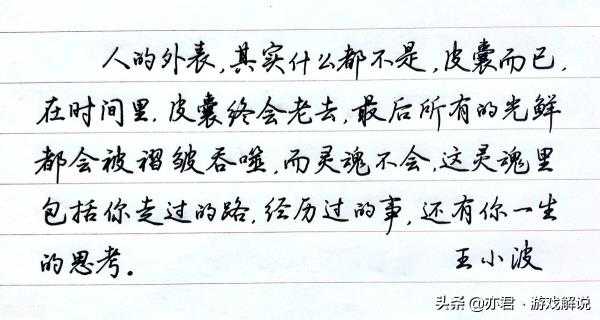 人的外表,其实什么都不是,皮囊而已,
在时间里,皮囊终会老去,最后所有的光鲜
都会被褶皱吞噬,而灵魂不会,这灵魂里
包括你走过的路,经历过的事,还有你一生
的思考。 王小波
头条 @亦君·游戏解说